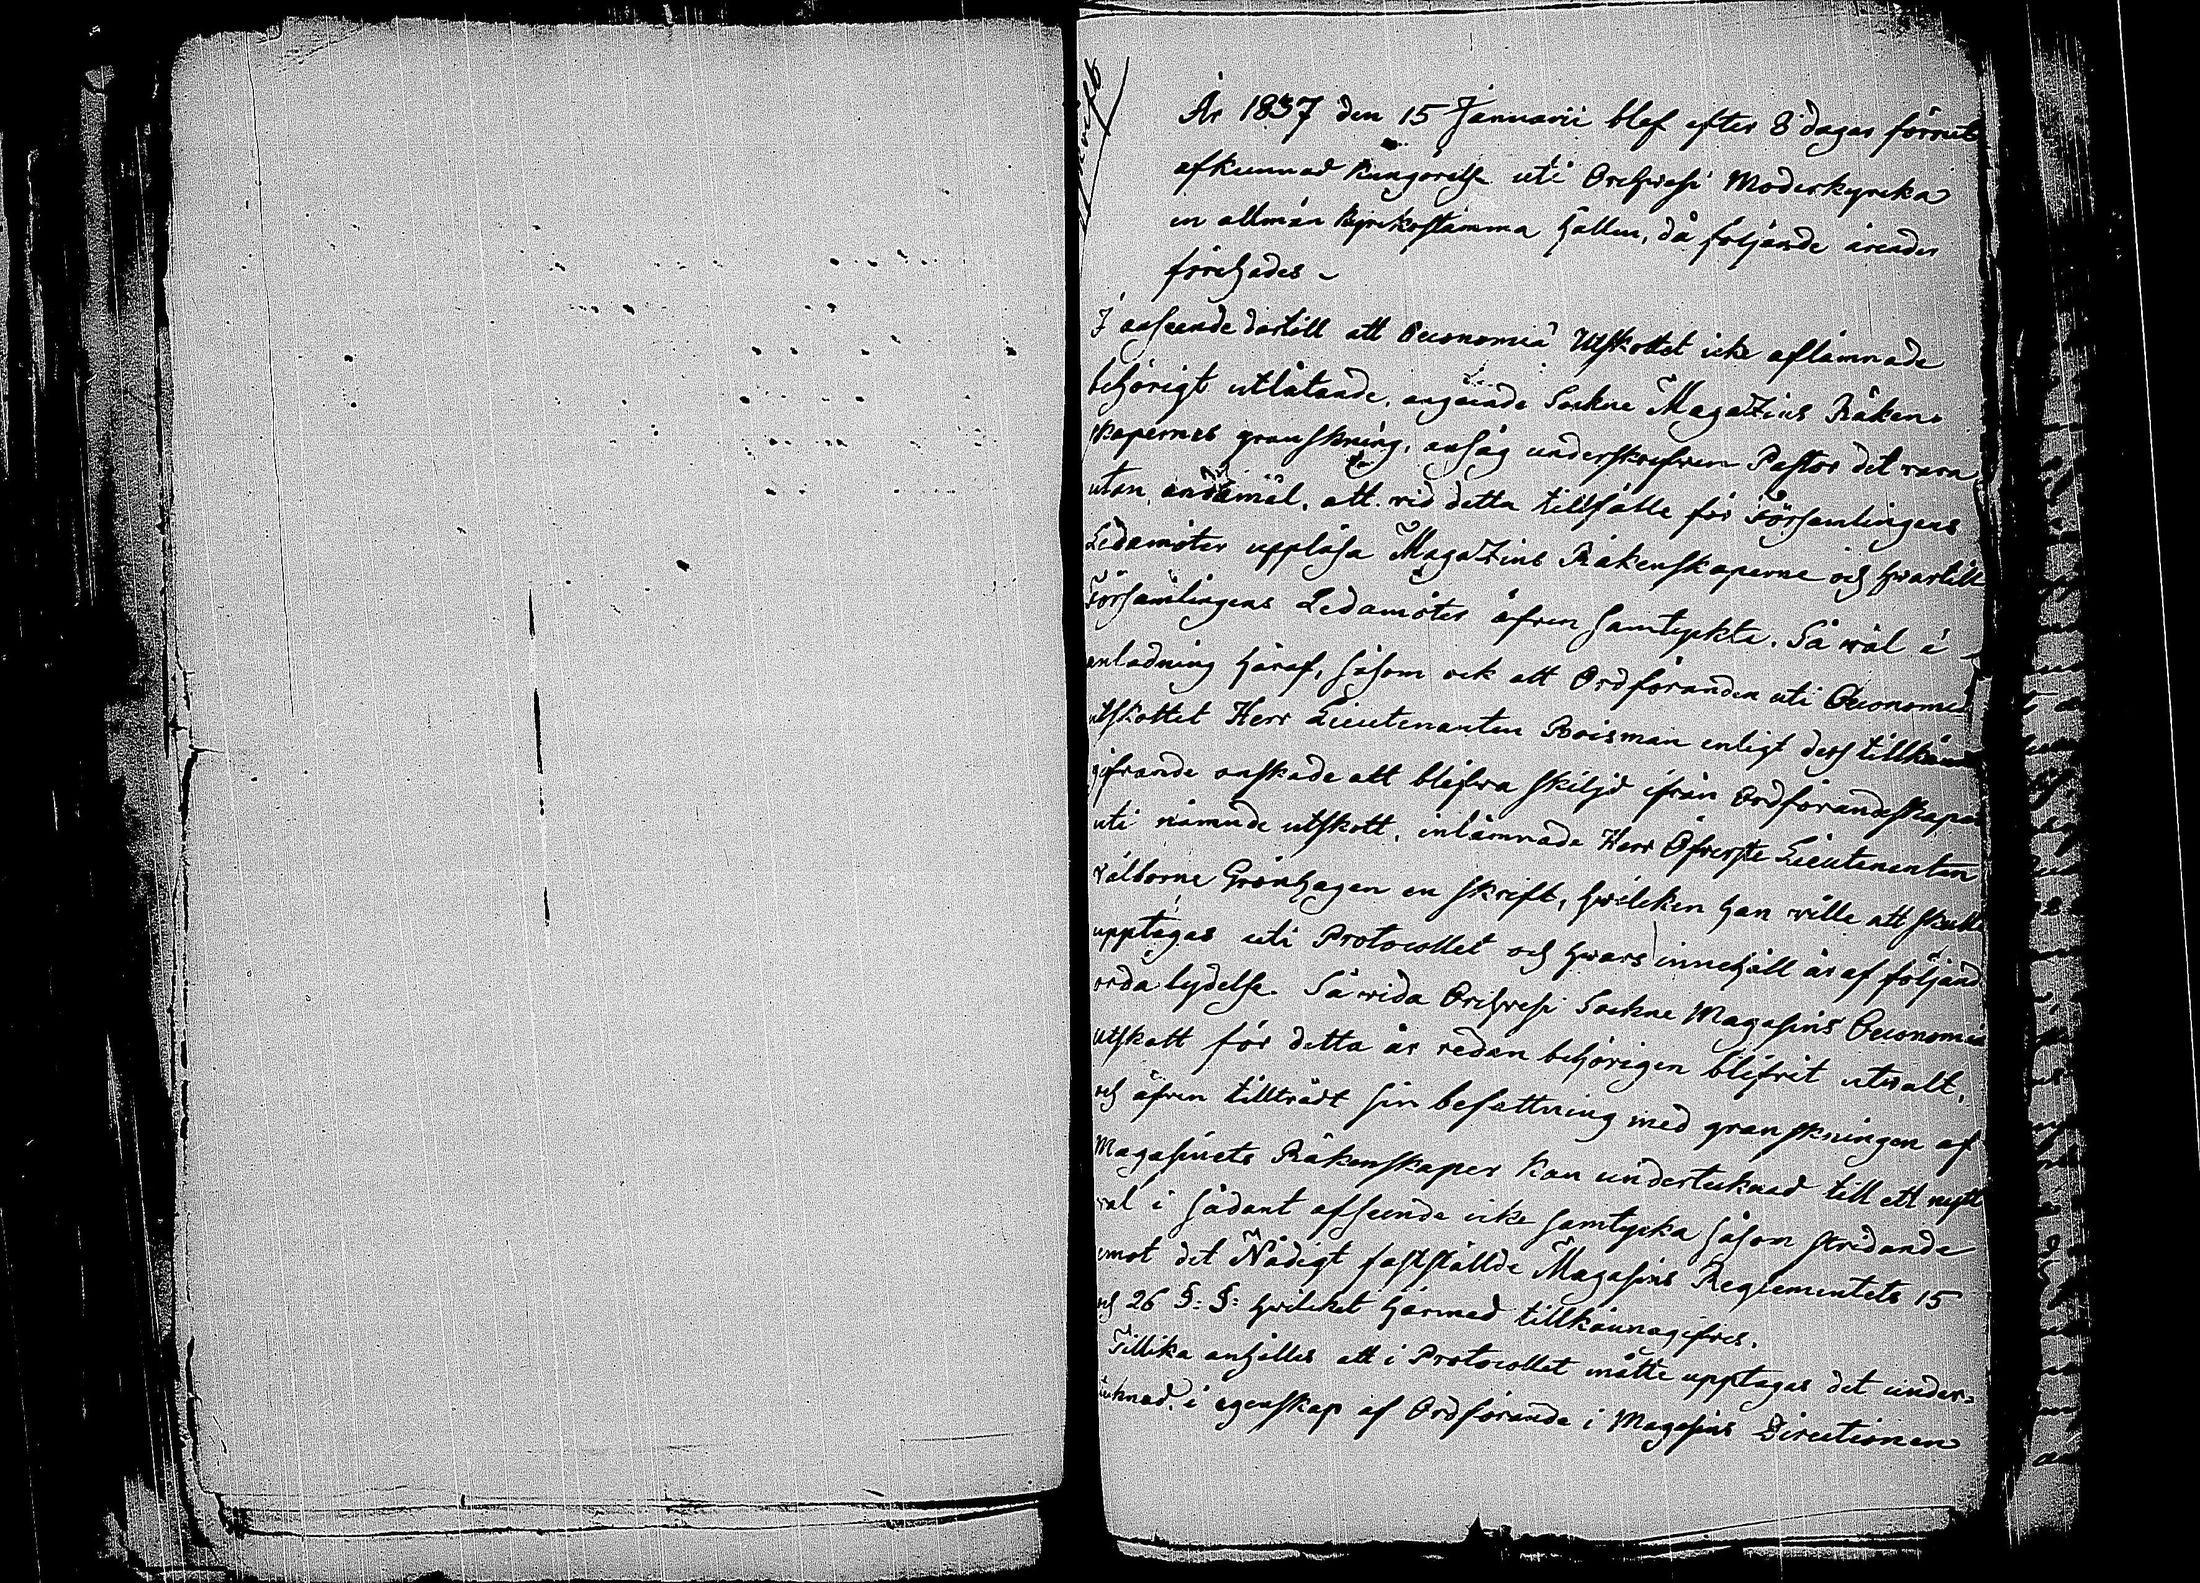 År 1837 den 15 Januarii blef efter 8 dagar förrut
afkunnad kungörelse uti Orihvesi Moderkyrka
en allmän Kyrkostämma hållen, då följande ärender
förehades.
I anseende dertill att Oeconomiæ Utskottet icke aflämnade
behörigt utlåtande, angående Sockne Magazins Räken-
skapernes granskning, ansåg underskrefwen Pastor det vara
utan ändamål, att vid detta tillfälle för Församlingens
Ledamöter uppläsa Magazins Räkenskaperne och hvartill
Församlingens Ledamöter äfven samtyckte. Så wäl i
anledning häraf, såsom ock att Ordföranden uti Oeconomie
utskottet Herr Lieutenanten Boisman enligt dess tillkänna
gifvande önskade att blifwa skiljd ifrån Ordförandskapet
uti nämnde utskott, inlämnade Herr Öfverste Lieutenanten
välborne Grönhagen en skrift, hwilken han ville att skulle
upptagas uti Protocollet och hwars innehåll är af följande
orda lydelse. Så vida Orihvesi Sockne Magasins Oeconomie
utskott för detta år redan behörigen blifvit utvalt,
och äfven tillträdt sin befattning med granskningen af
Magasinets Räkenskaper kan undertecknad till ett nytt
val i sådant afseende icke samtycka såsom stridande
emot det Nådigt fastställde Magasins Reglementets 15
och 26 §: §: hwilket härmed tillkännagifves.
Tillika anhålles att i Protocollet måtte upptagas det under-
tecknad, i egenskap af Ordförande i Magasins Directionen